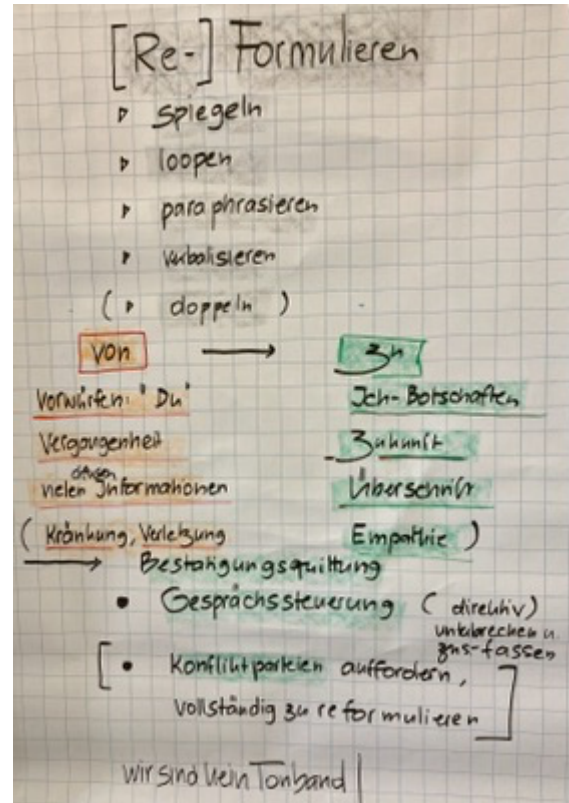 [Re-] Formulieren
▹ spiegeln
▹ loopen
▹ paraphrasieren
▹ verbalisieren
( ▹ doppeln )
von → zu
Vorwürfen: "Du" Ich-Botschaften
Vergangenheit Zukunft
vielen Informationen Überschrift
( Kränkung, Verletzung Empathie )
→ Bestätigungsquittung
• Gesprächssteuerung ( direktiv)
unterbrechen u.
zus-fassen
[ • Konfliktparteien auffordern,
vollständig zu reformulieren ]
wir sind kein Tonband !